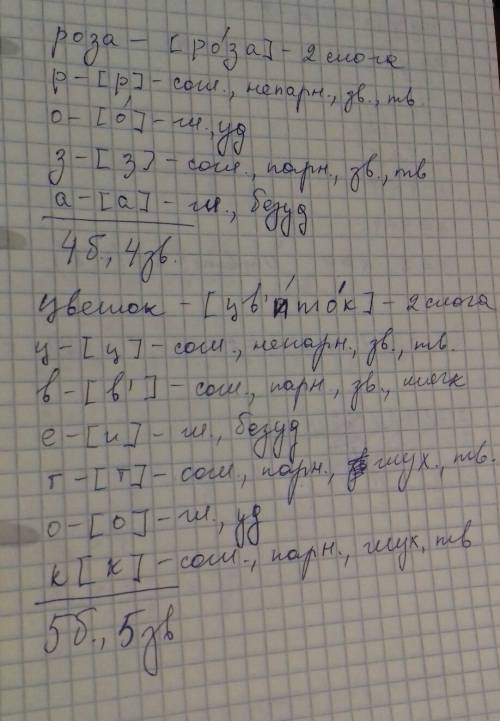 роза – [ро́за] – 2 слога
р – [р] – согл., непарн., зв., тв
о – [о́] – гл., уд
з – [з] – согл., парн., зв., тв
а – [а] – гл., безуд
4б., 4зв.
цветок – [цв'ито́к] – 2 слога
ц – [ц] – согл., непарн., зв., тв.
в – [в'] – согл., парн., зв., мягк
е – [и] – гл., безуд
т – [т] – согл., парн., глух., тв.
о – [о] – гл., уд
к [к] – согл., парн., глух, тв
5б., 5зв